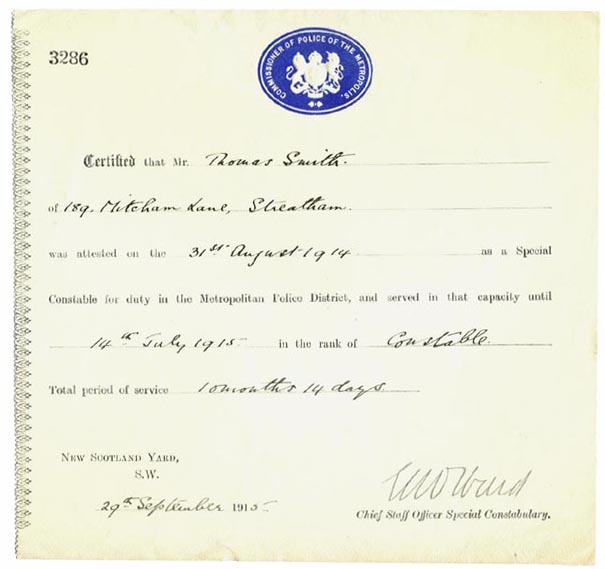 3286
COMMISSIONER OF POLICE OF THE METROPOLIS.
Certified that Mr. Thomas Smith.
of 189. Mitcham Lane, Streatham.
was attested on the 31st August 1914 as a Special
Constable for duty in the Metropolitan Police District, and served in that capacity until
14th July 1915 in the rank of Constable.
Total period of service 10 months 14 days
NEW SCOTLAND YARD,
S.W.
29th September 1915
Chief Staff Officer Special Constabulary.